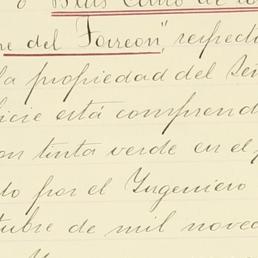 Blas Cano de lo
re del Torreón", respecti
la propiedad del Señ
icie está comprend
on tinta verde en el p
do por el Yngeniero
tubre de mil novec